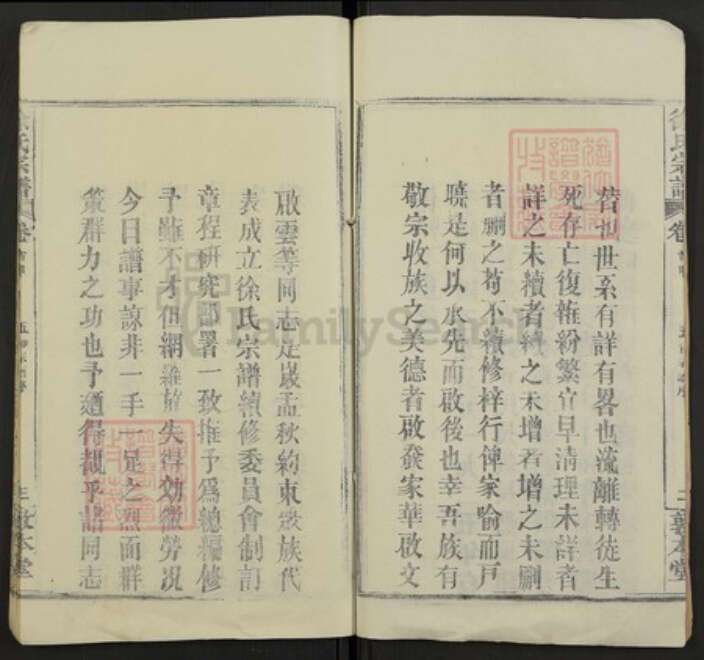 替也世系有詳有畧也流離轉徙生
死存亡復雜紛繁宜早清理未詳者
詳之未續者續之未增者增之未刪
者刪之苟不續修梓行俾家喻而戸
曉是何以承先而啟後也幸吾族有
敬宗收族之美德者啟發家華啟文
啟雲等同志是嵗孟秋約東眾族代
表成立徐氏宗譜續修委員會制訂
章程研究部署一致推予爲總編修
予雖不才但網羅放失得効微勞况
今日譜事諒非一手一足之烈而群
策群力之功也予廼得觀乎諸同志
徐氏宗譜
卷
二
敦本堂
徐氏宗譜
卷
三
敦本堂
FamilySearch